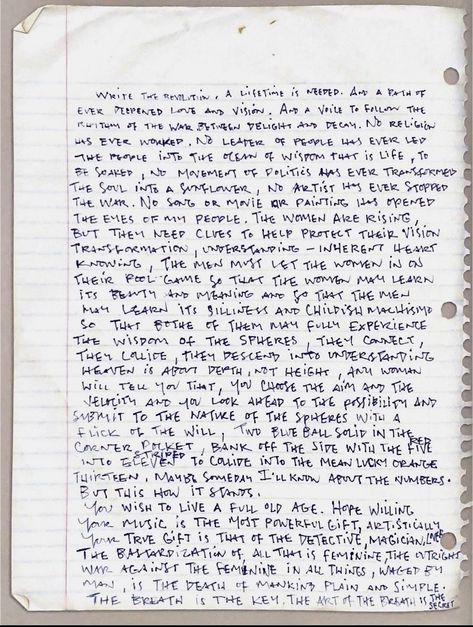 WRITE THE REVOLUTION. A LIFETIME IS NEEDED. AND A PATH OF
EVER DEEPENED LOVE AND VISION. AND A VOICE TO FOLLOW THE
RHYTHM OF THE WAR BETWEEN DELIGHT AND DECAY. NO RELIGION
HAS EVER WORKED. NO LEADER OF PEOPLE HAS EVER LED
THE PEOPLE INTO THE OCEAN OF WISDOM THAT IS LIFE, TO
BE SOAKED, NO MOVEMENT OF POLITICS HAS EVER TRANSFORMED
THE SOUL INTO A SUNFLOWER, NO ARTIST HAS EVER STOPPED
THE WAR. NO SONG OR MOVIE OR PAINTING HAS OPENED
THE EYES OF MY PEOPLE. THE WOMEN ARE RISING,
BUT THEY NEED CLUES TO HELP PROTECT THEIR VISION
TRANSFORMATION, UNDERSTANDING - INHERENT HEART
KNOWING, THE MEN MUST LET THE WOMEN IN ON
THEIR POOL GAME SO THAT THE WOMEN MAY LEARN
ITS BEAUTY AND MEANING AND SO THAT THE MEN
MAY LEARN ITS SILLINESS AND CHILDISH MACHISMO
SO THAT BOTHE OF THEM MAY FULLY EXPERIENCE
THE WISDOM OF THE SPHERES, THEY CONNECT,
THEY COLLIDE, THEY DESCEND INTO UNDERSTANDING
HEAVEN IS ABOUT DEPTH, NOT HEIGHT, ANY WOMAN
WILL TELL YOU THAT, YOU CHOOSE THE AIM AND THE
VELOCITY AND YOU LOOK AHEAD TO THE POSSIBILITY AND
SUBMIT TO THE NATURE OF THE SPHERES WITH A
FLICK OF THE WILL, TWO BLUE BALL SOLID IN THE
CORNER POCKET, BANK OFF THE SIDE WITH THE RED FIVE
INTO STRIPED ELEVEN TO COLLIDE INTO THE MEAN LUCKY ORANGE
THIRTEEN. MAYBE SOMEDAY I'LL KNOW ABOUT THE NUMBERS.
BUT THIS HOW IT STANDS.
YOU WISH TO LIVE A FULL OLD AGE. HOPE WILLING
YOUR MUSIC IS THE MOST POWERFUL GIFT, ARTISTICALLY
YOUR TRUE GIFT IS THAT OF THE DETECTIVE, MAGICIAN, LOVER
THE BASTARDIZATION OF, ALL THAT IS FEMININE, THE OUTRIGHT
WAR AGAINST THE FEMININE IN ALL THINGS, WAGED BY
MAN, IS THE DEATH OF MANKIND PLAIN AND SIMPLE.
THE BREATH IS THE KEY, THE ART OF THE BREATH IS THE SECRET